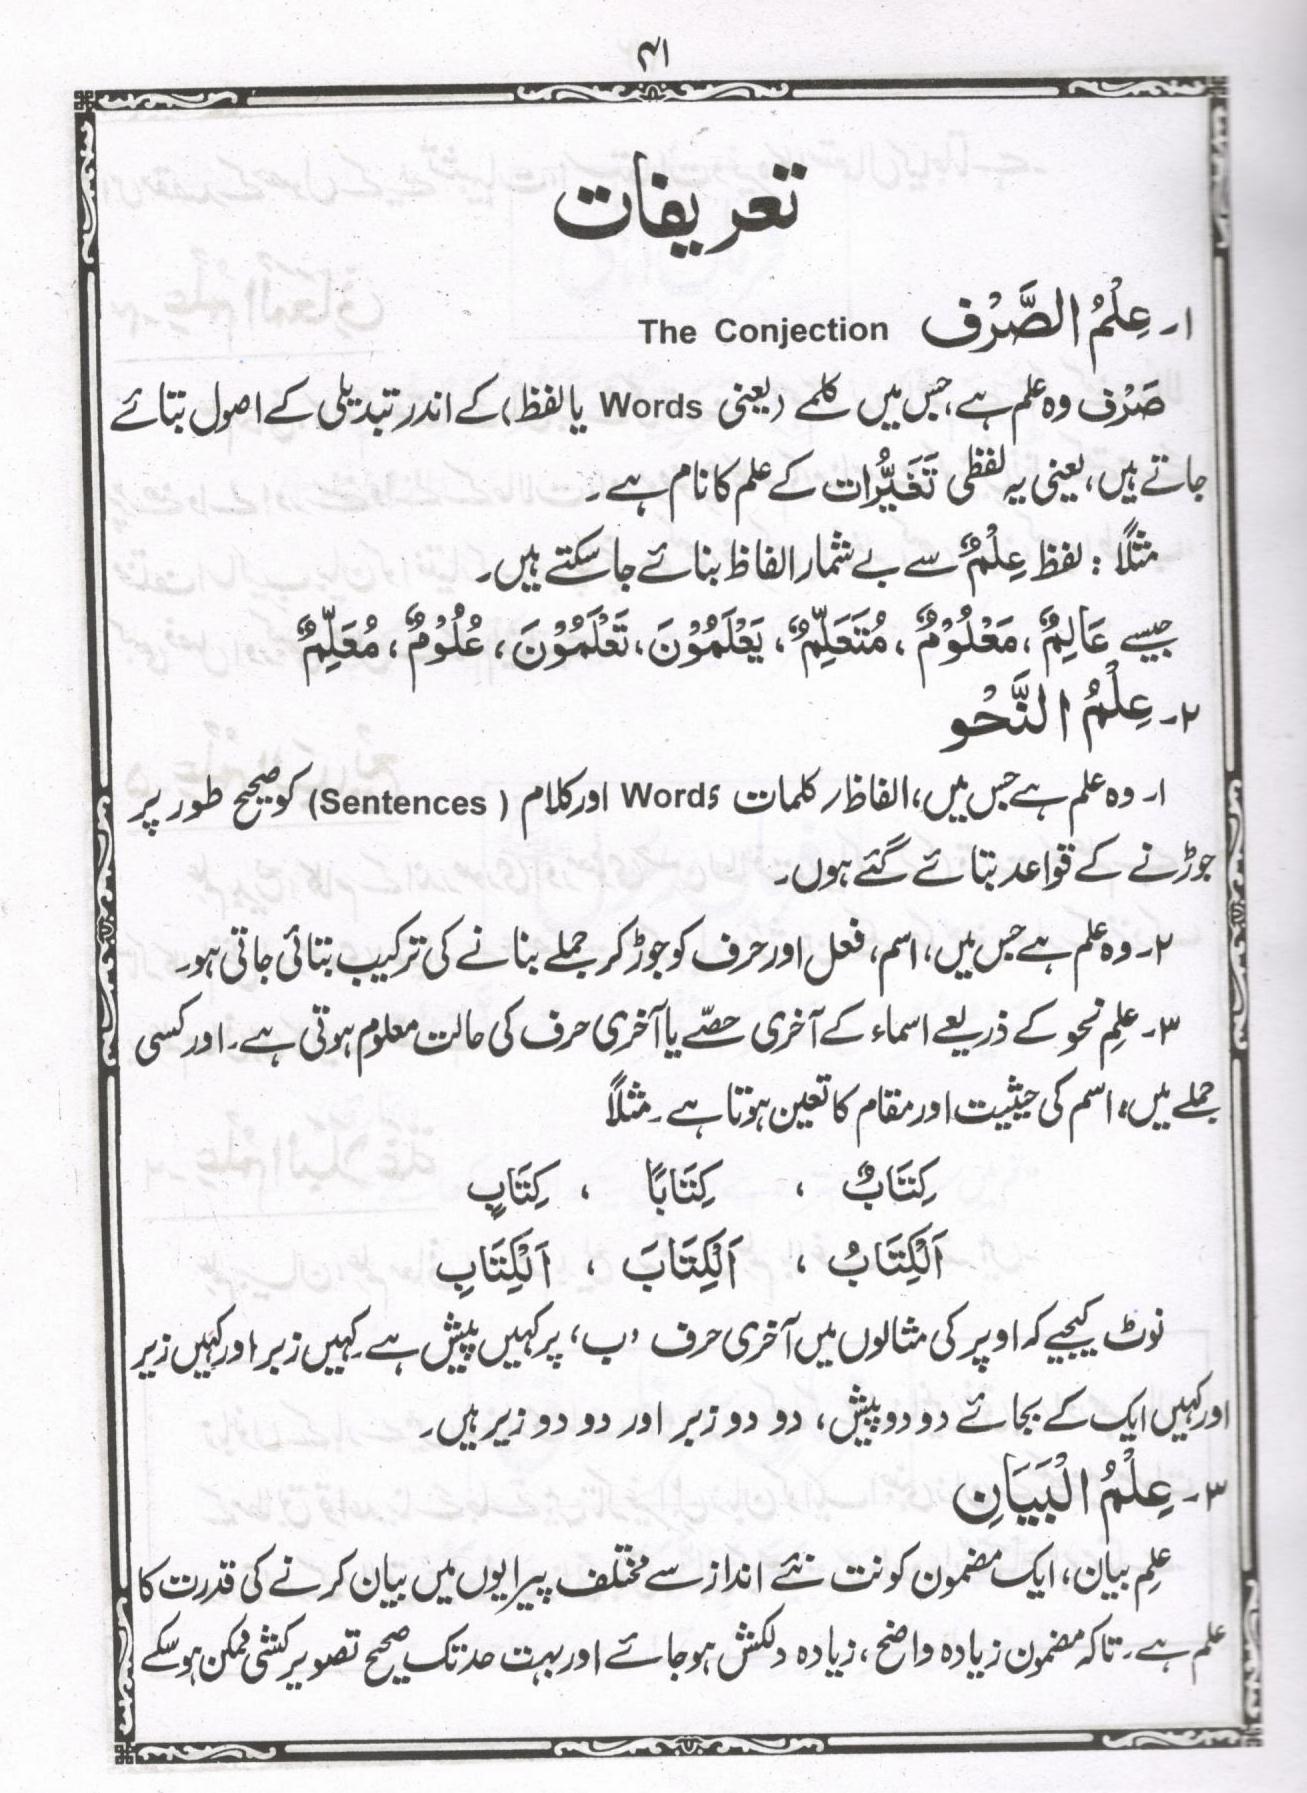 ۴۱
تعریفات
۱۔ عِلْمُ الصَّرْف The Conjection
صَرْف وہ علم ہے، جس میں کلمے (یعنی Words یا لفظ) کے اندر تبدیلی کے اصول بتائے
جاتے ہیں، یعنی یہ لفظی تَغَیُّرات کے علم کا نام ہے۔
مثلاً : لفظ عِلْمٌ سے بے شمار الفاظ بنائے جا سکتے ہیں۔
جیسے عَالِمٌ، مَعْلُوْمٌ، مُتَعَلِّمٌ، یَعْلَمُوْنَ، تَعْلَمُوْنَ، عُلُوْمٌ، مُعَلِّمٌ
۲۔ عِلْمُ النَّحْو
۱۔ وہ علم ہے جس میں، الفاظ / کلمات Words اور کلام (Sentences) کو صحیح طور پر
جوڑنے کے قواعد بتائے گئے ہوں۔
۲۔ وہ علم ہے جس میں، اسم، فعل اور حرف کو جوڑ کر جملے بنانے کی ترکیب بتائی جاتی ہو۔
۳۔ علمِ نحو کے ذریعے اسماء کے آخری حصّے یا آخری حرف کی حالت معلوم ہوتی ہے۔ اور کسی
جملے میں، اسم کی حیثیت اور مقام کا تعین ہوتا ہے۔ مثلاً
کِتَابٌ ، کِتَابًا ، کِتَابٍ
اَلْکِتَابُ ، اَلْکِتَابَ ، اَلْکِتَابِ
نوٹ کیجیے کہ اوپر کی مثالوں میں آخری حرف ’ب‘ پر کہیں پیش ہے۔ کہیں زبر اور کہیں زیر
اور کہیں ایک کے بجائے دو دو پیش، دو دو زبر اور دو دو زیر ہیں۔
۳۔ عِلْمُ الْبَیَانِ
علمِ بیان، ایک مضمون کو نت نئے انداز سے مختلف پیرایوں میں بیان کرنے کی قدرت کا
علم ہے۔ تاکہ مضمون زیادہ واضح، زیادہ دلکش ہو جائے اور بہت حد تک صحیح تصویر کشی ممکن ہو سکے